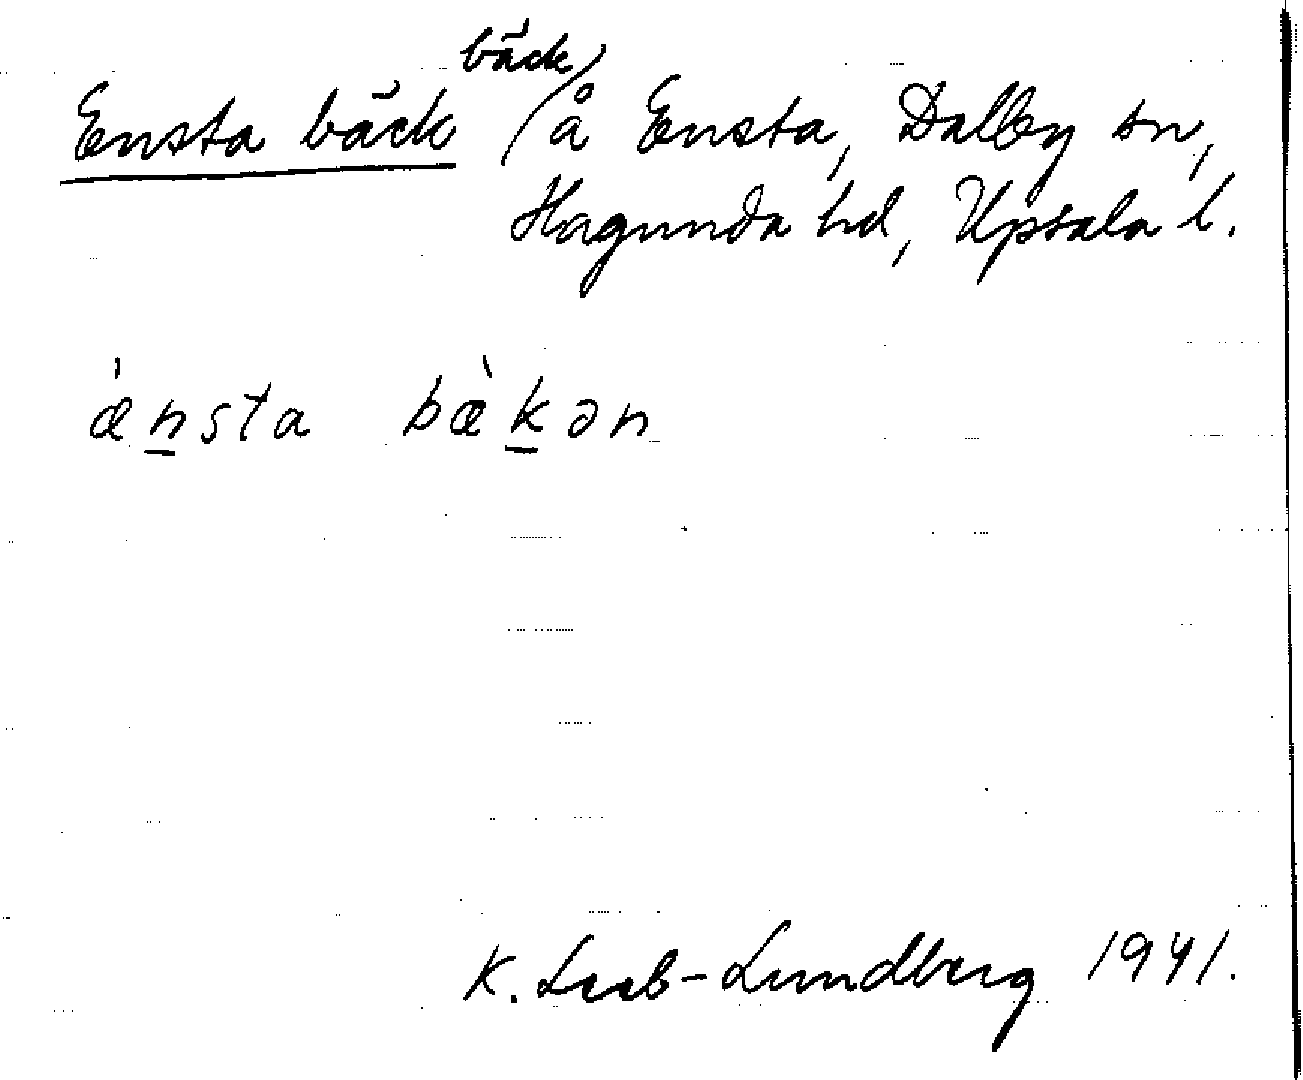 bäck
Ensta bäck / å Ensta, Dalby sn,
Hagunda hd, Upsala l.
æ̀n̲sta bæ̀k̲ən
K. Leeb-Lundberg 1941.